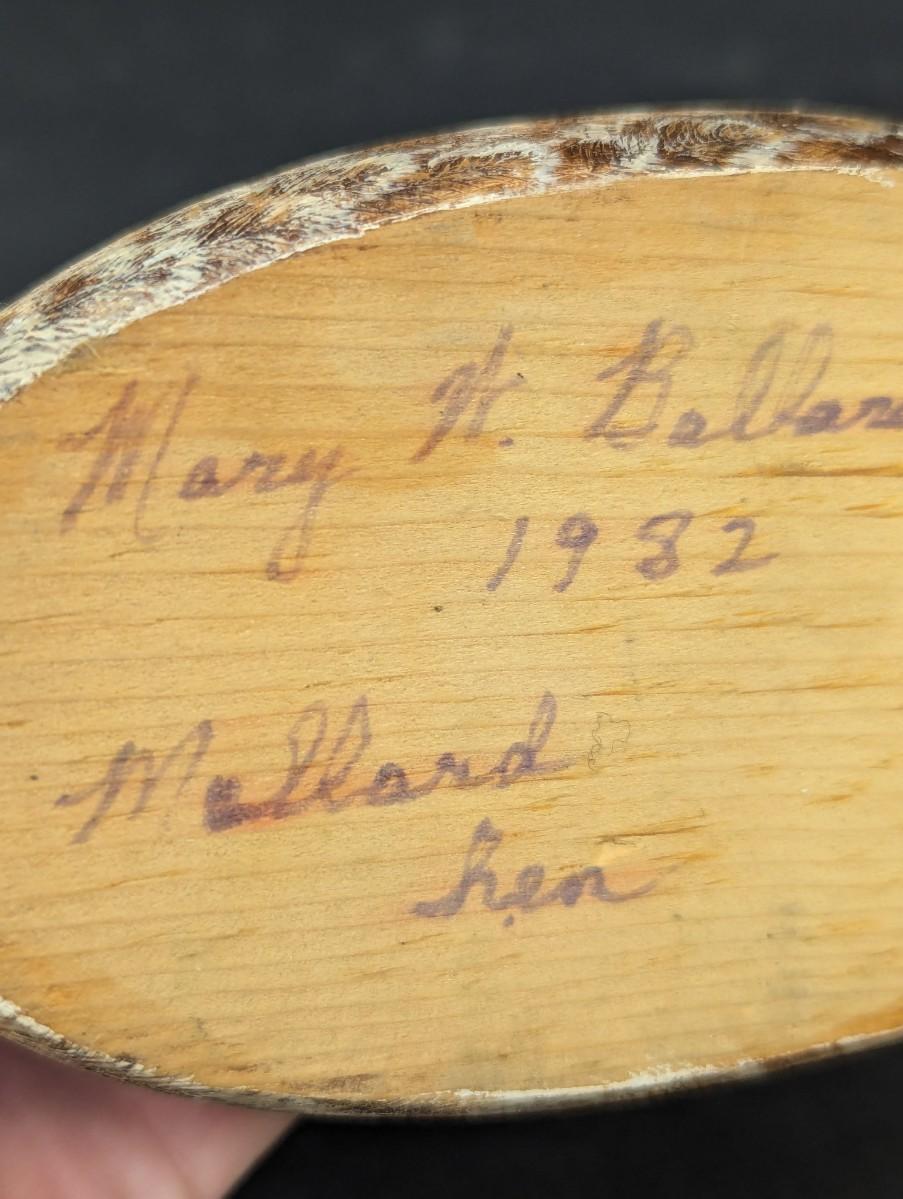 Mary W. Ballar
1982
Mallard
hen